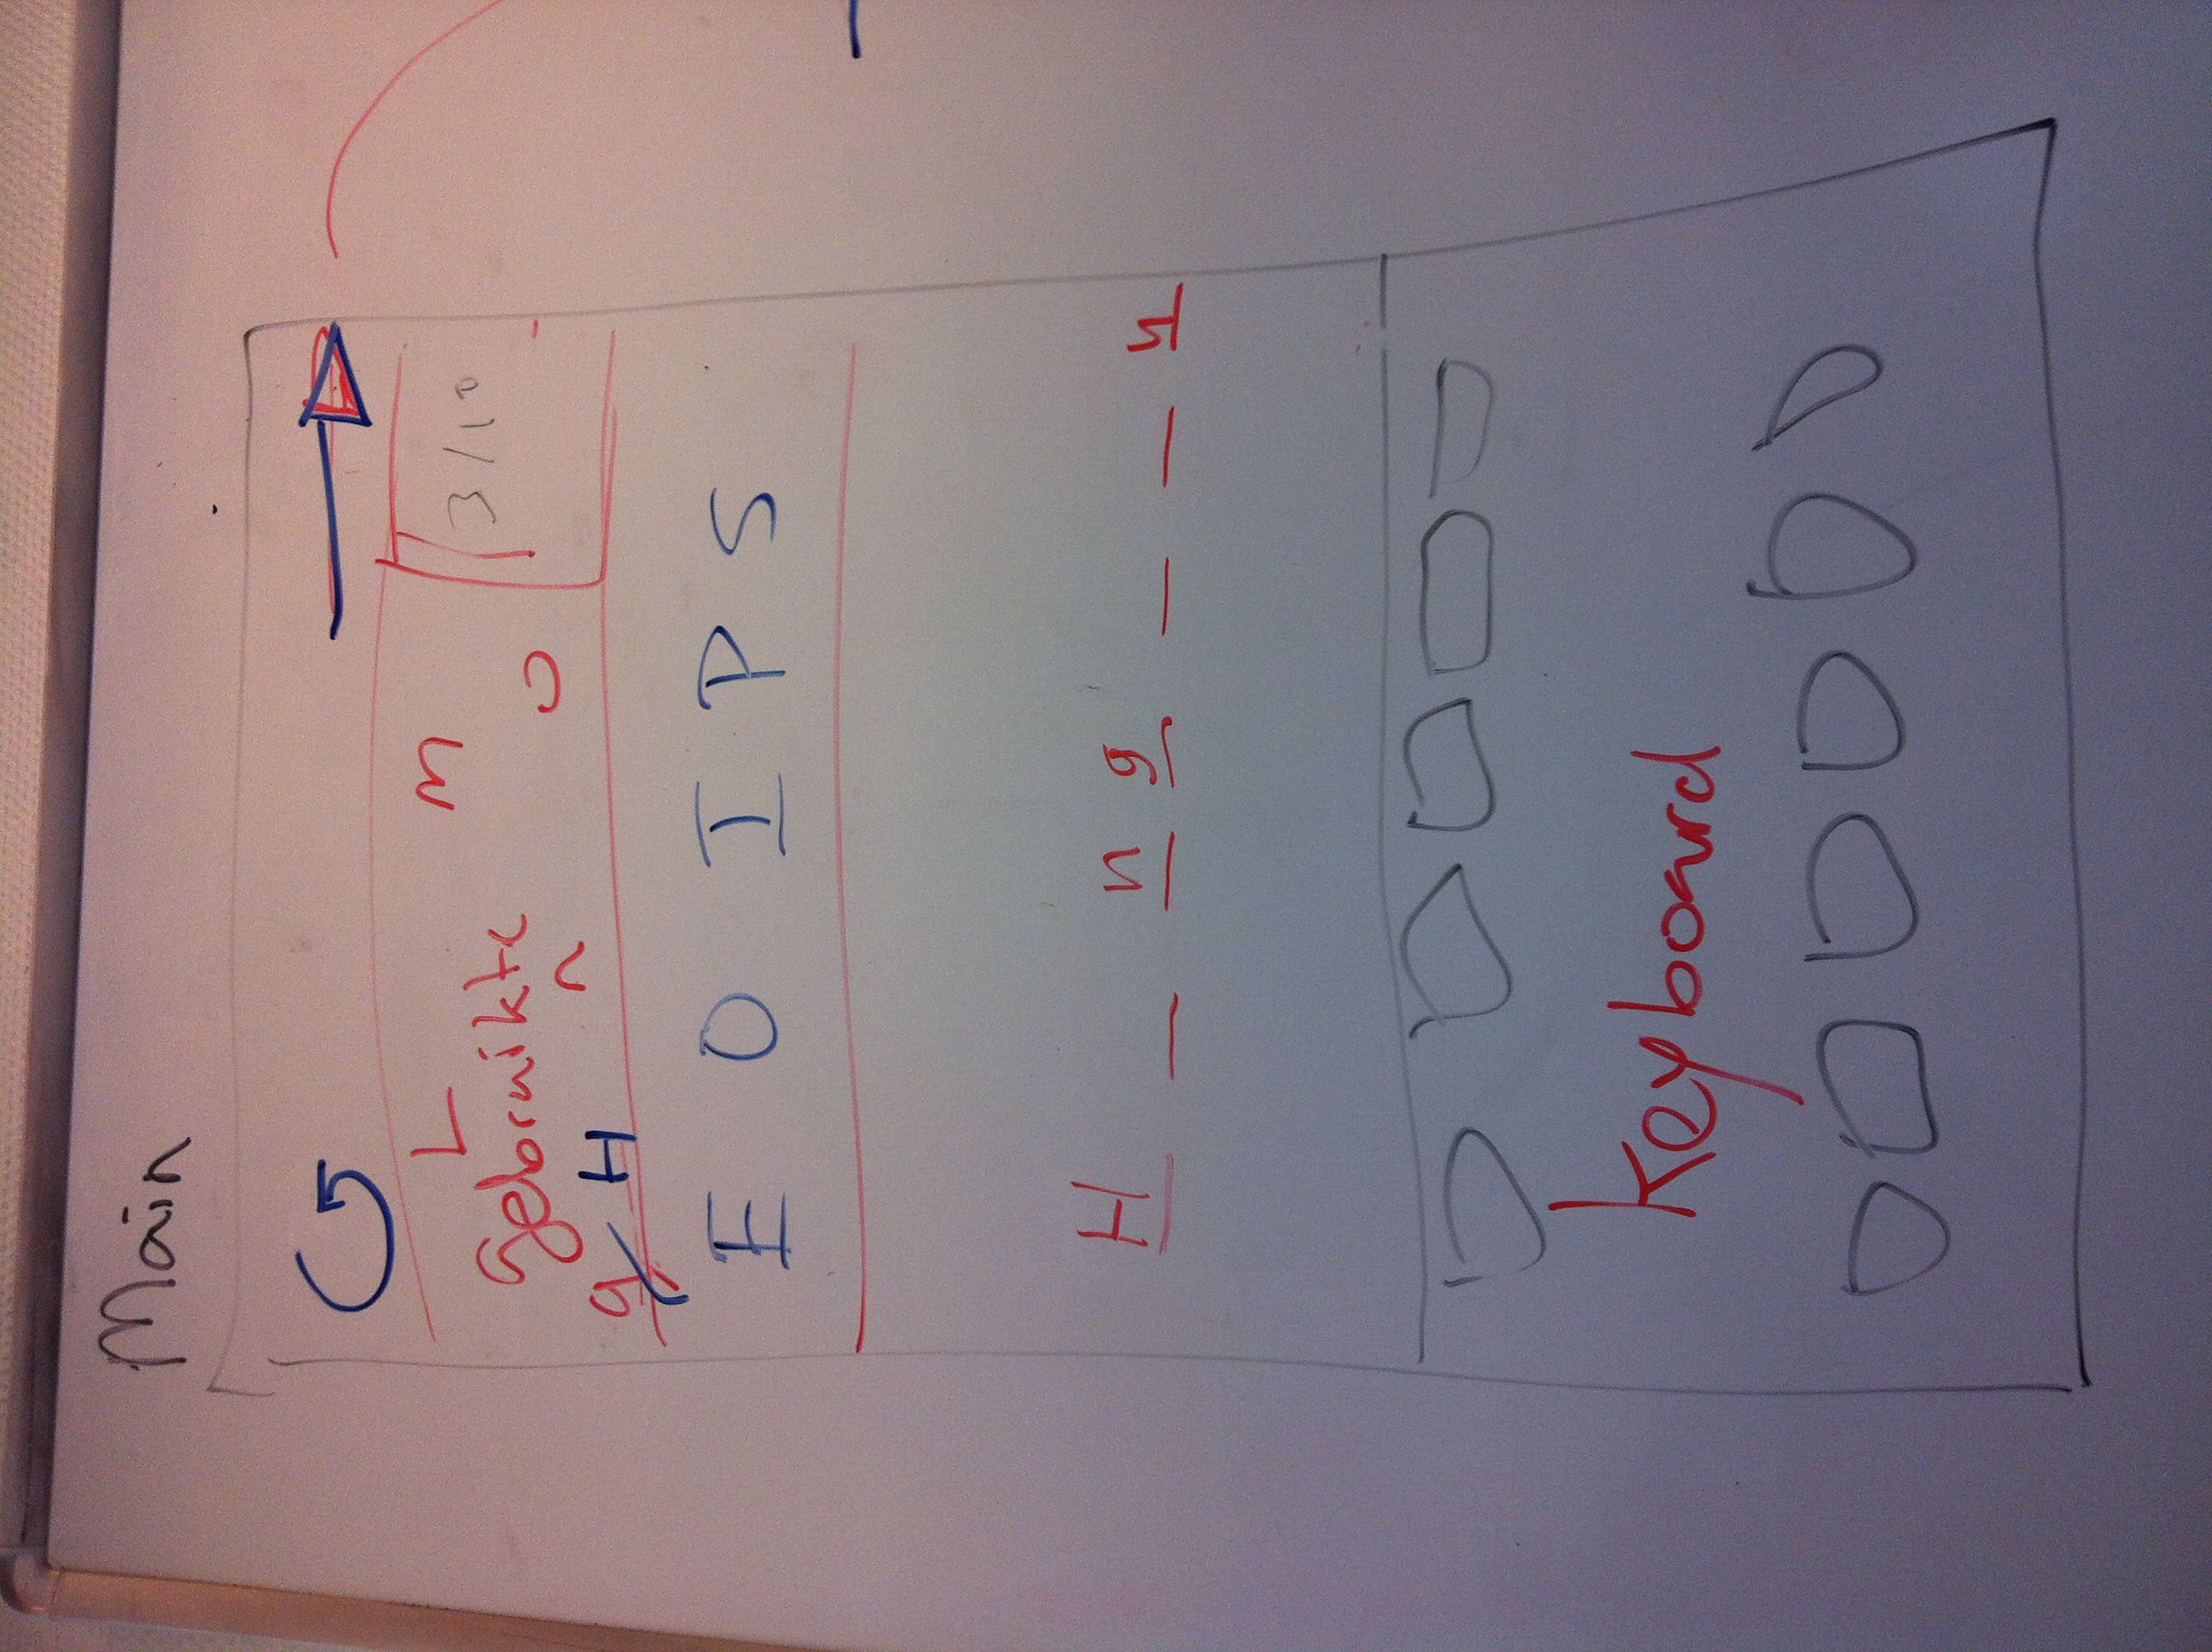 Main
L M
gebruikte 3/10
n O
g H
E O I P S
H _ n g _ _ n
keyboard